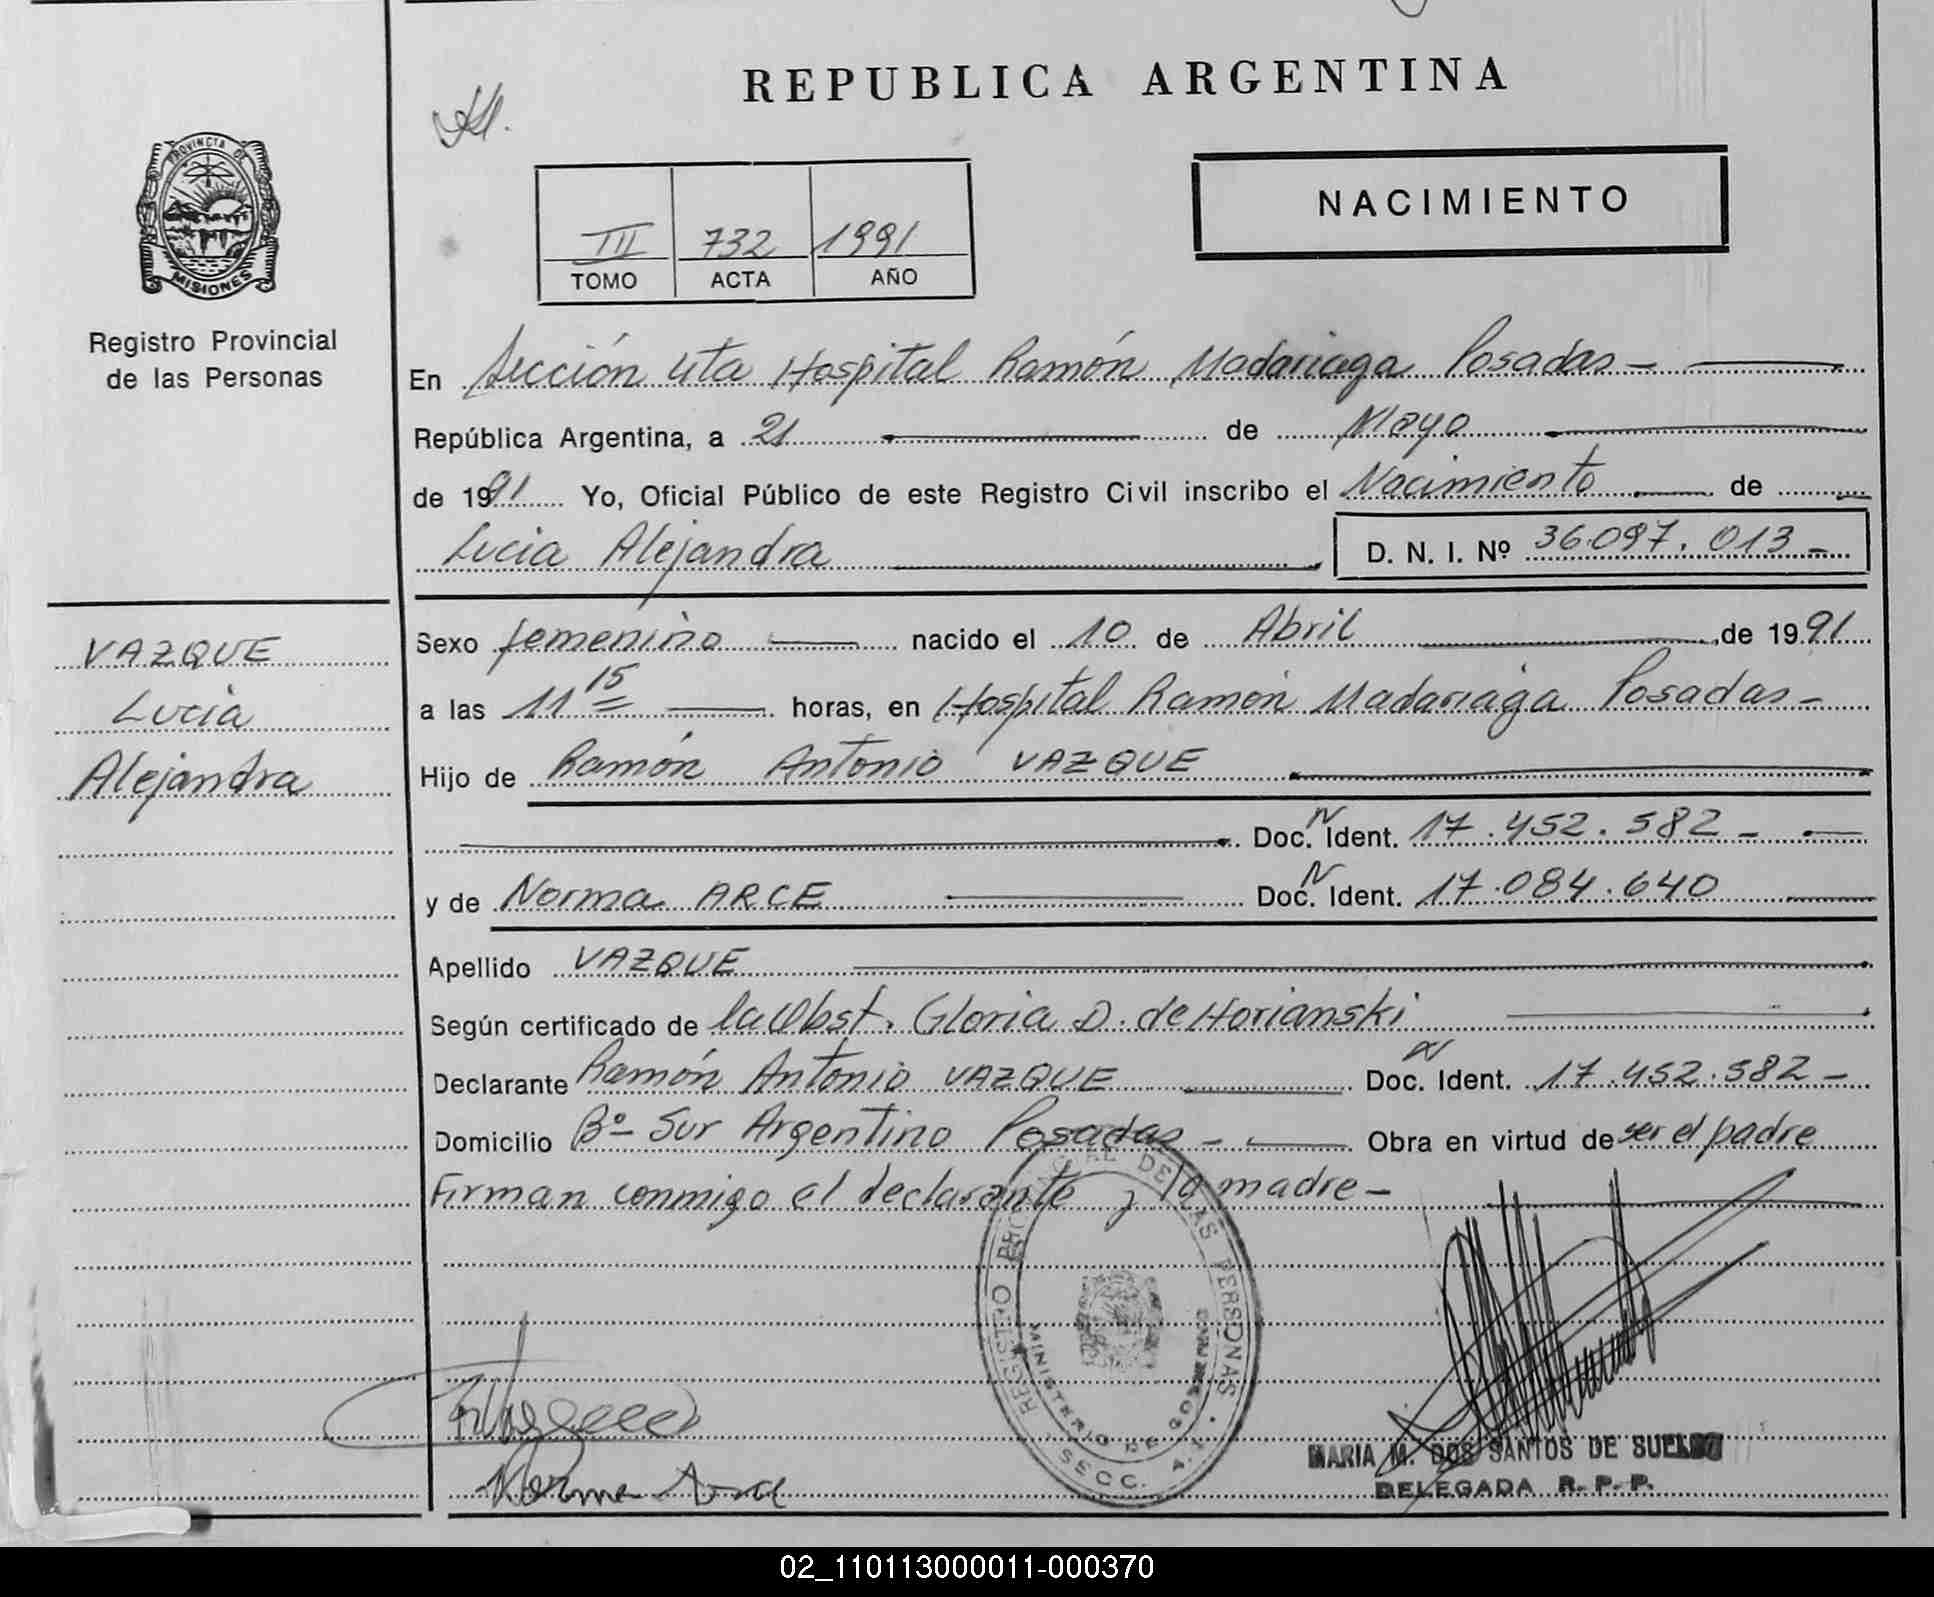 REPUBLICA ARGENTINA
PROVINCIA DE
MISIONES
Registro Provincial
de las Personas
III 732 1991
TOMO ACTA AÑO
NACIMIENTO
En Sección 4ta Hospital Ramón Madariaga Posadas -
República Argentina, a 21 de Mayo
de 1991 Yo, Oficial Público de este Registro Civil inscribo el Nacimiento de
Lucia Alejandra D. N. I. Nº 36.097.013 -
VAZQUE
Lucia
Alejandra
Sexo femenino nacido el 10 de Abril de 1991
a las 11 15 horas, en Hospital Ramón Madariaga Posadas -
Hijo de Ramón Antonio VAZQUE
Doc. N Ident. 17.452.582 -
y de Norma ARCE Doc. N Ident. 17.084.640
Apellido VAZQUE
Según certificado de la Obst. Gloria D. de Horianski
Declarante Ramón Antonio VAZQUE Doc. N Ident. 17.452.582 -
Domicilio Bº Sur Argentino Posadas - Obra en virtud de ser el padre
Firman conmigo el declarante y la madre -
REGISTRO PROVINCIAL DE LAS PERSONAS
MINISTERIO DE GOBIERNO
SECC. 4
Norma Arce
MARIA M. DOS SANTOS DE
DELEGADA R. P. P.
02_110113000011-000370